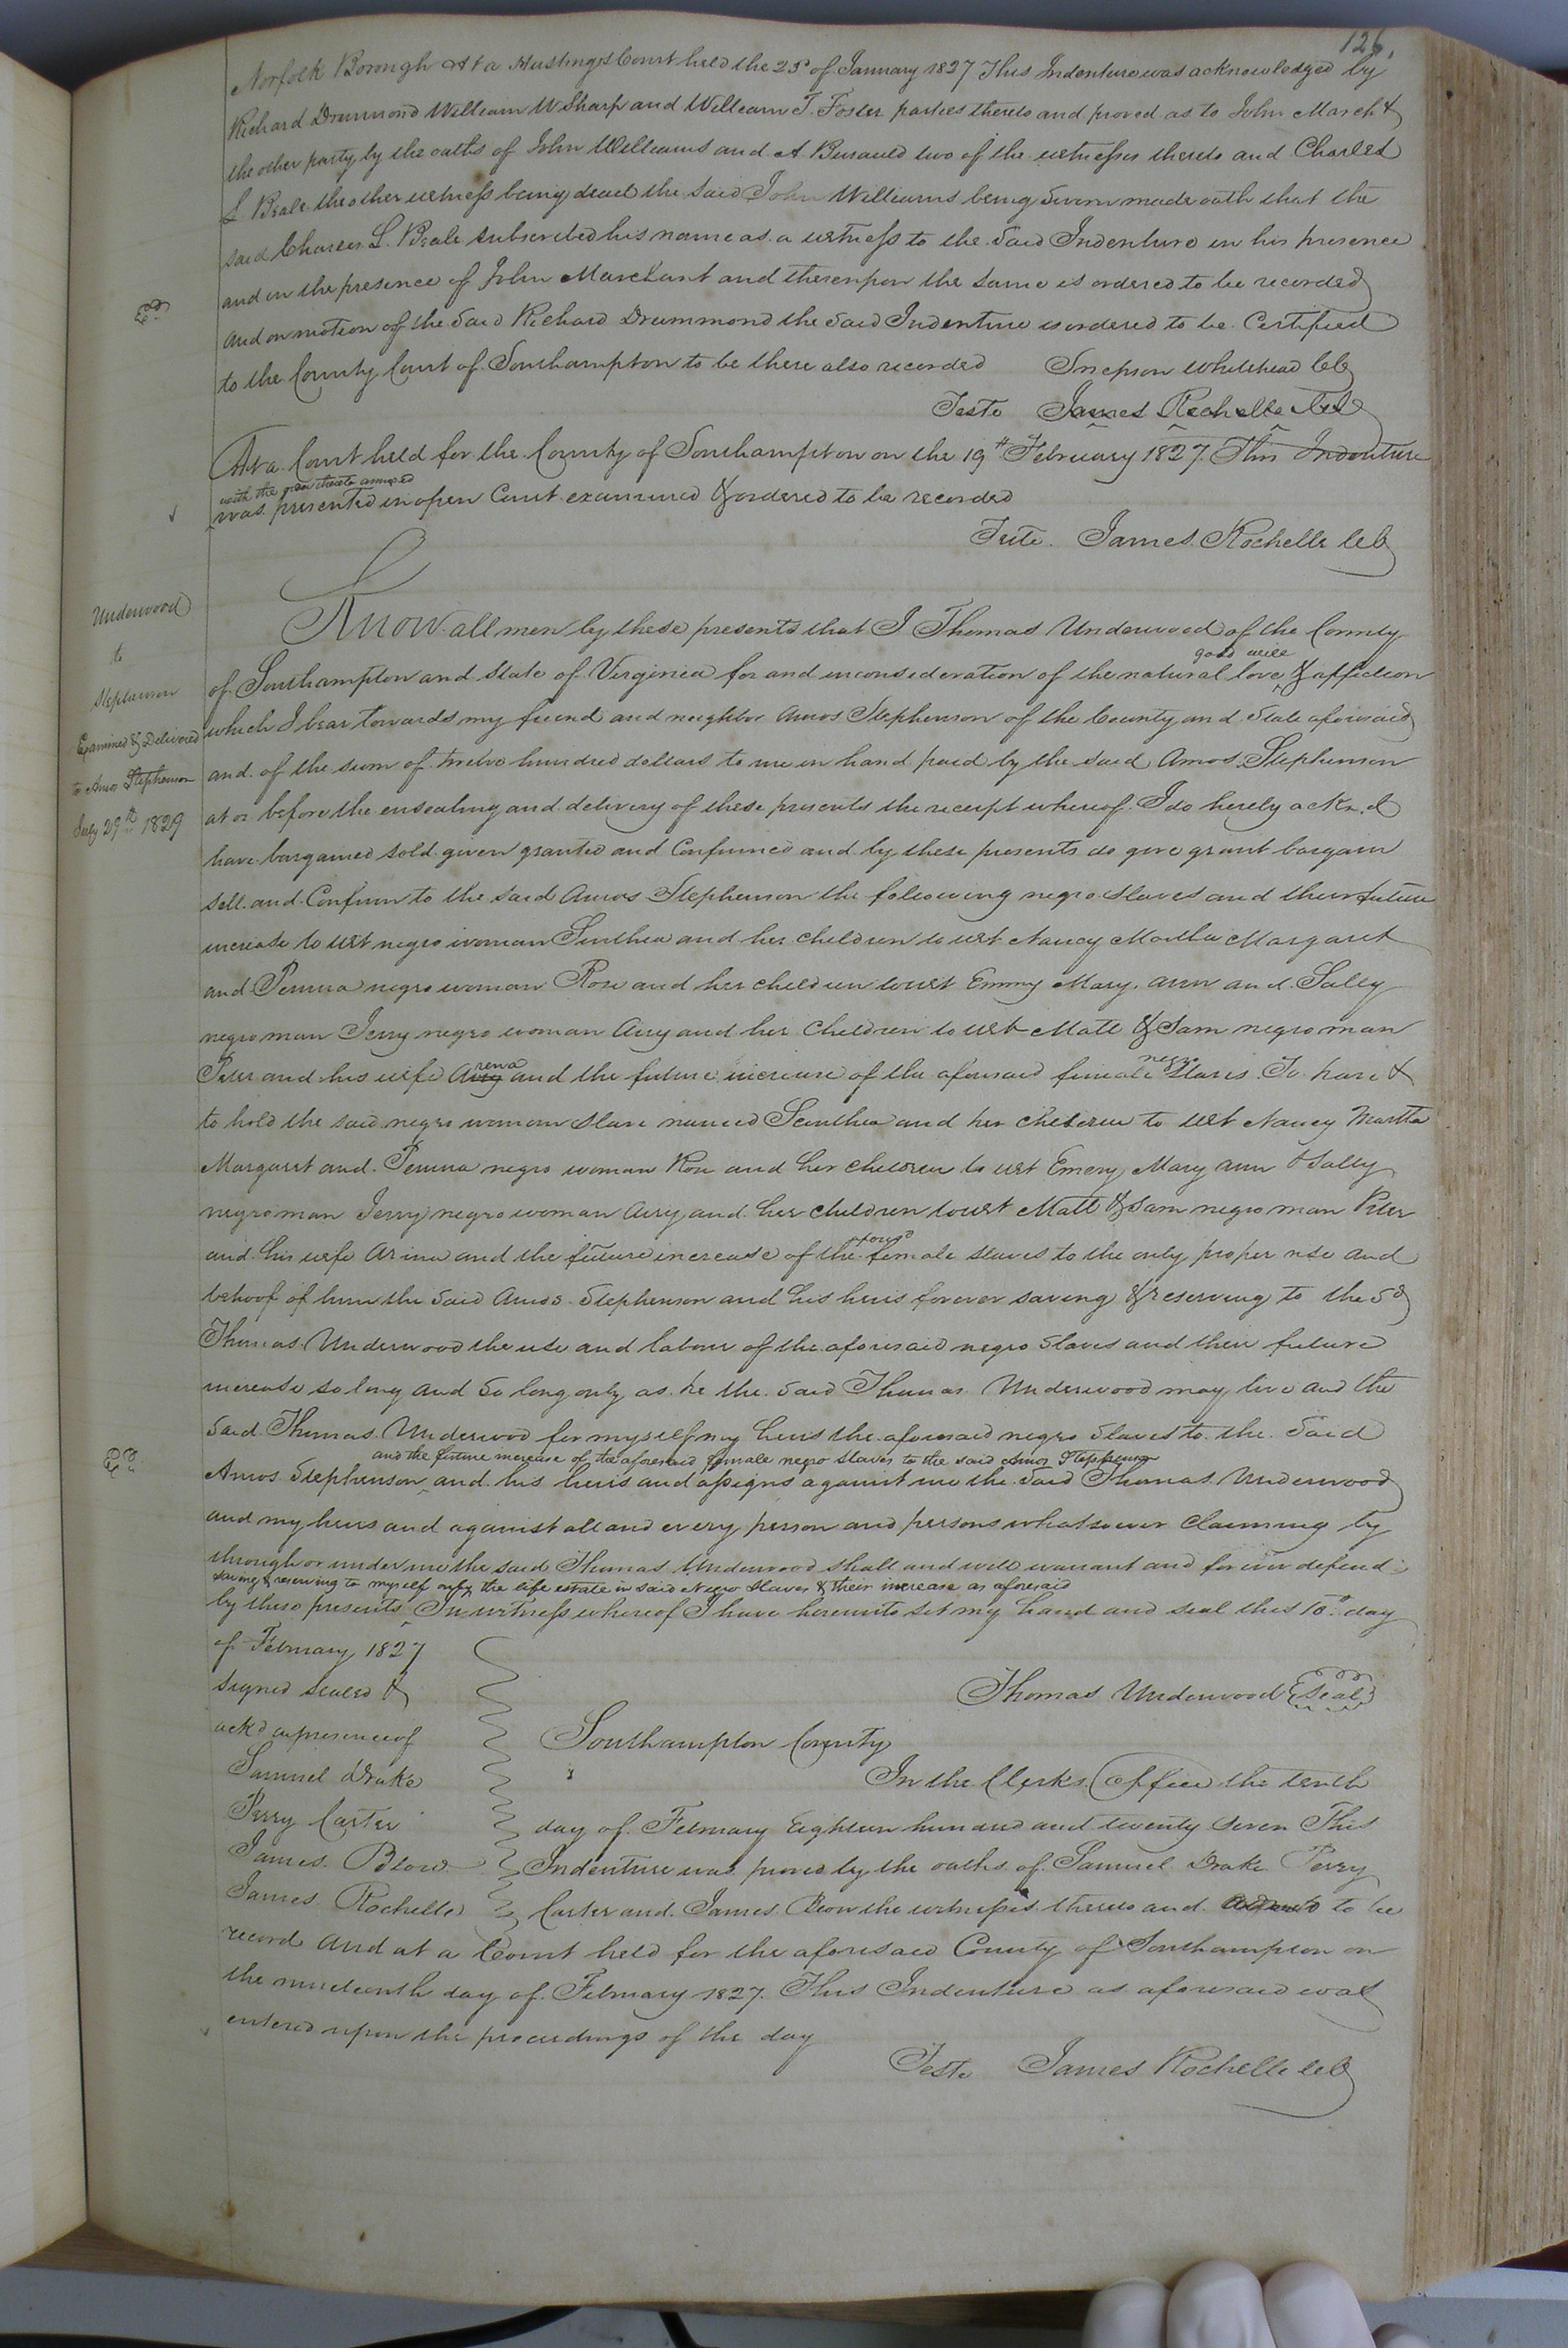 126.
Norfolk Borough At a Hustings Court held the 23d of January 1827 This Indenture was acknowledged by
Richard Drummond William W Sharp and William T. Foster parties thereto and proved as to John March t
the other party by the oaths of John Williams and A. two of the witnesses thereto and Charles
L Beale the other witness being dead the said John Williams being sworn made oath that the
said Charles L. Beale subscribed his name as a witness to the said Indenture in his presence
and in the presence of John Marchant and thereupon the same is ordered to be recorded
Exd
and on motion of the said Richard Drummond the said Indenture is ordered to be Certified
to the County Court of Southampton to be there also recorded Whitehead CC
Teste James Rochelle
At a Court held for the County of Southampton on the 19th February 1827 This Indenture
with the thereto annexed
was presented in open Court examined & ordered to be recorded
Teste. James Rochelle CC
Underwood
to
Stephenson
Examined & Delivered
to Amos Stephenson
July 29th 1829
Know all men by these presents that I Thomas Underwood of the County
good will
of Southampton and State of Virginia for and in consideration of the natural love & affection
which I bear towards my friend and neighbor Amos Stephenson of the County and State aforesaid
and of the sum of twelve hundred dollars to me in hand paid by the said Amos Stephenson
at or before the ensealing and delivery of these presents the receipt whereof I do hereby ackn.d
have bargained sold given granted and Confirmed and by these presents do give grant bargain
sell and Confirm to the said Amos Stephenson the following negro slaves and their future
increase to wit negro woman Sinthea and her children to wit Nancy Martha Margaret
and negro woman Rose and her children to wit Emmy Mary ann and Sally
negro man Jerry negro woman Airy and her children to wit Matt & Sam negro man
rena negro
Peter and his wife A and the future increase of the aforesaid female slaves To have &
to hold the said negro woman slave named Scinthea and her children to wit Nancy Martha
Margaret and negro woman Rose and her children to wit Emery Mary ann & Sally
negro man Jerry negro woman Airy and her children to wit Matt & Sam negro man Peter
aforesd
and his wife Arena and the future increase of the female slaves to the only proper use and
behoof of him the said Amos Stephenson and his heirs forever saving & reserving to the sd
Thomas Underwood the use and labour of the aforesaid negro slaves and their future
increase so long and so long only as he the said Thomas Underwood may live and the
said Thomas Underwood for myself my heirs the aforesaid negro slaves to the said
and the future increase of the aforesaid female negro slaves to the said Amos Stephenson
Exd
Amos Stephenson and his heirs and assigns against me the said Thomas Underwood
and my heirs and against all and every person and persons whatsoever claiming by
through or under me the said Thomas Underwood shall and will warrant and forever defend
saving & reserving to myself only the life estate in said Negro slaves & their increase as aforesaid
by these presents In witness whereof I have hereunto set my hand and seal this 10th day
of February 1827
signed sealed &
Thomas Underwood {Seal}
ackd in presence of
Southampton County
Samuel Drake
In the Clerks Office the tenth
Perry Carter
day of February Eighteen hundred and twenty seven This
James Blow
Indenture was proved by the oaths of Samuel Drake Perry
James Rochelle
Carter and James Blow the witnesses thereto and to be
record And at a Court held for the aforesaid County of Southampton on
the nineteenth day of February 1827. This Indenture as aforesaid was
entered upon the proceedings of the day
Teste James Rochelle CC